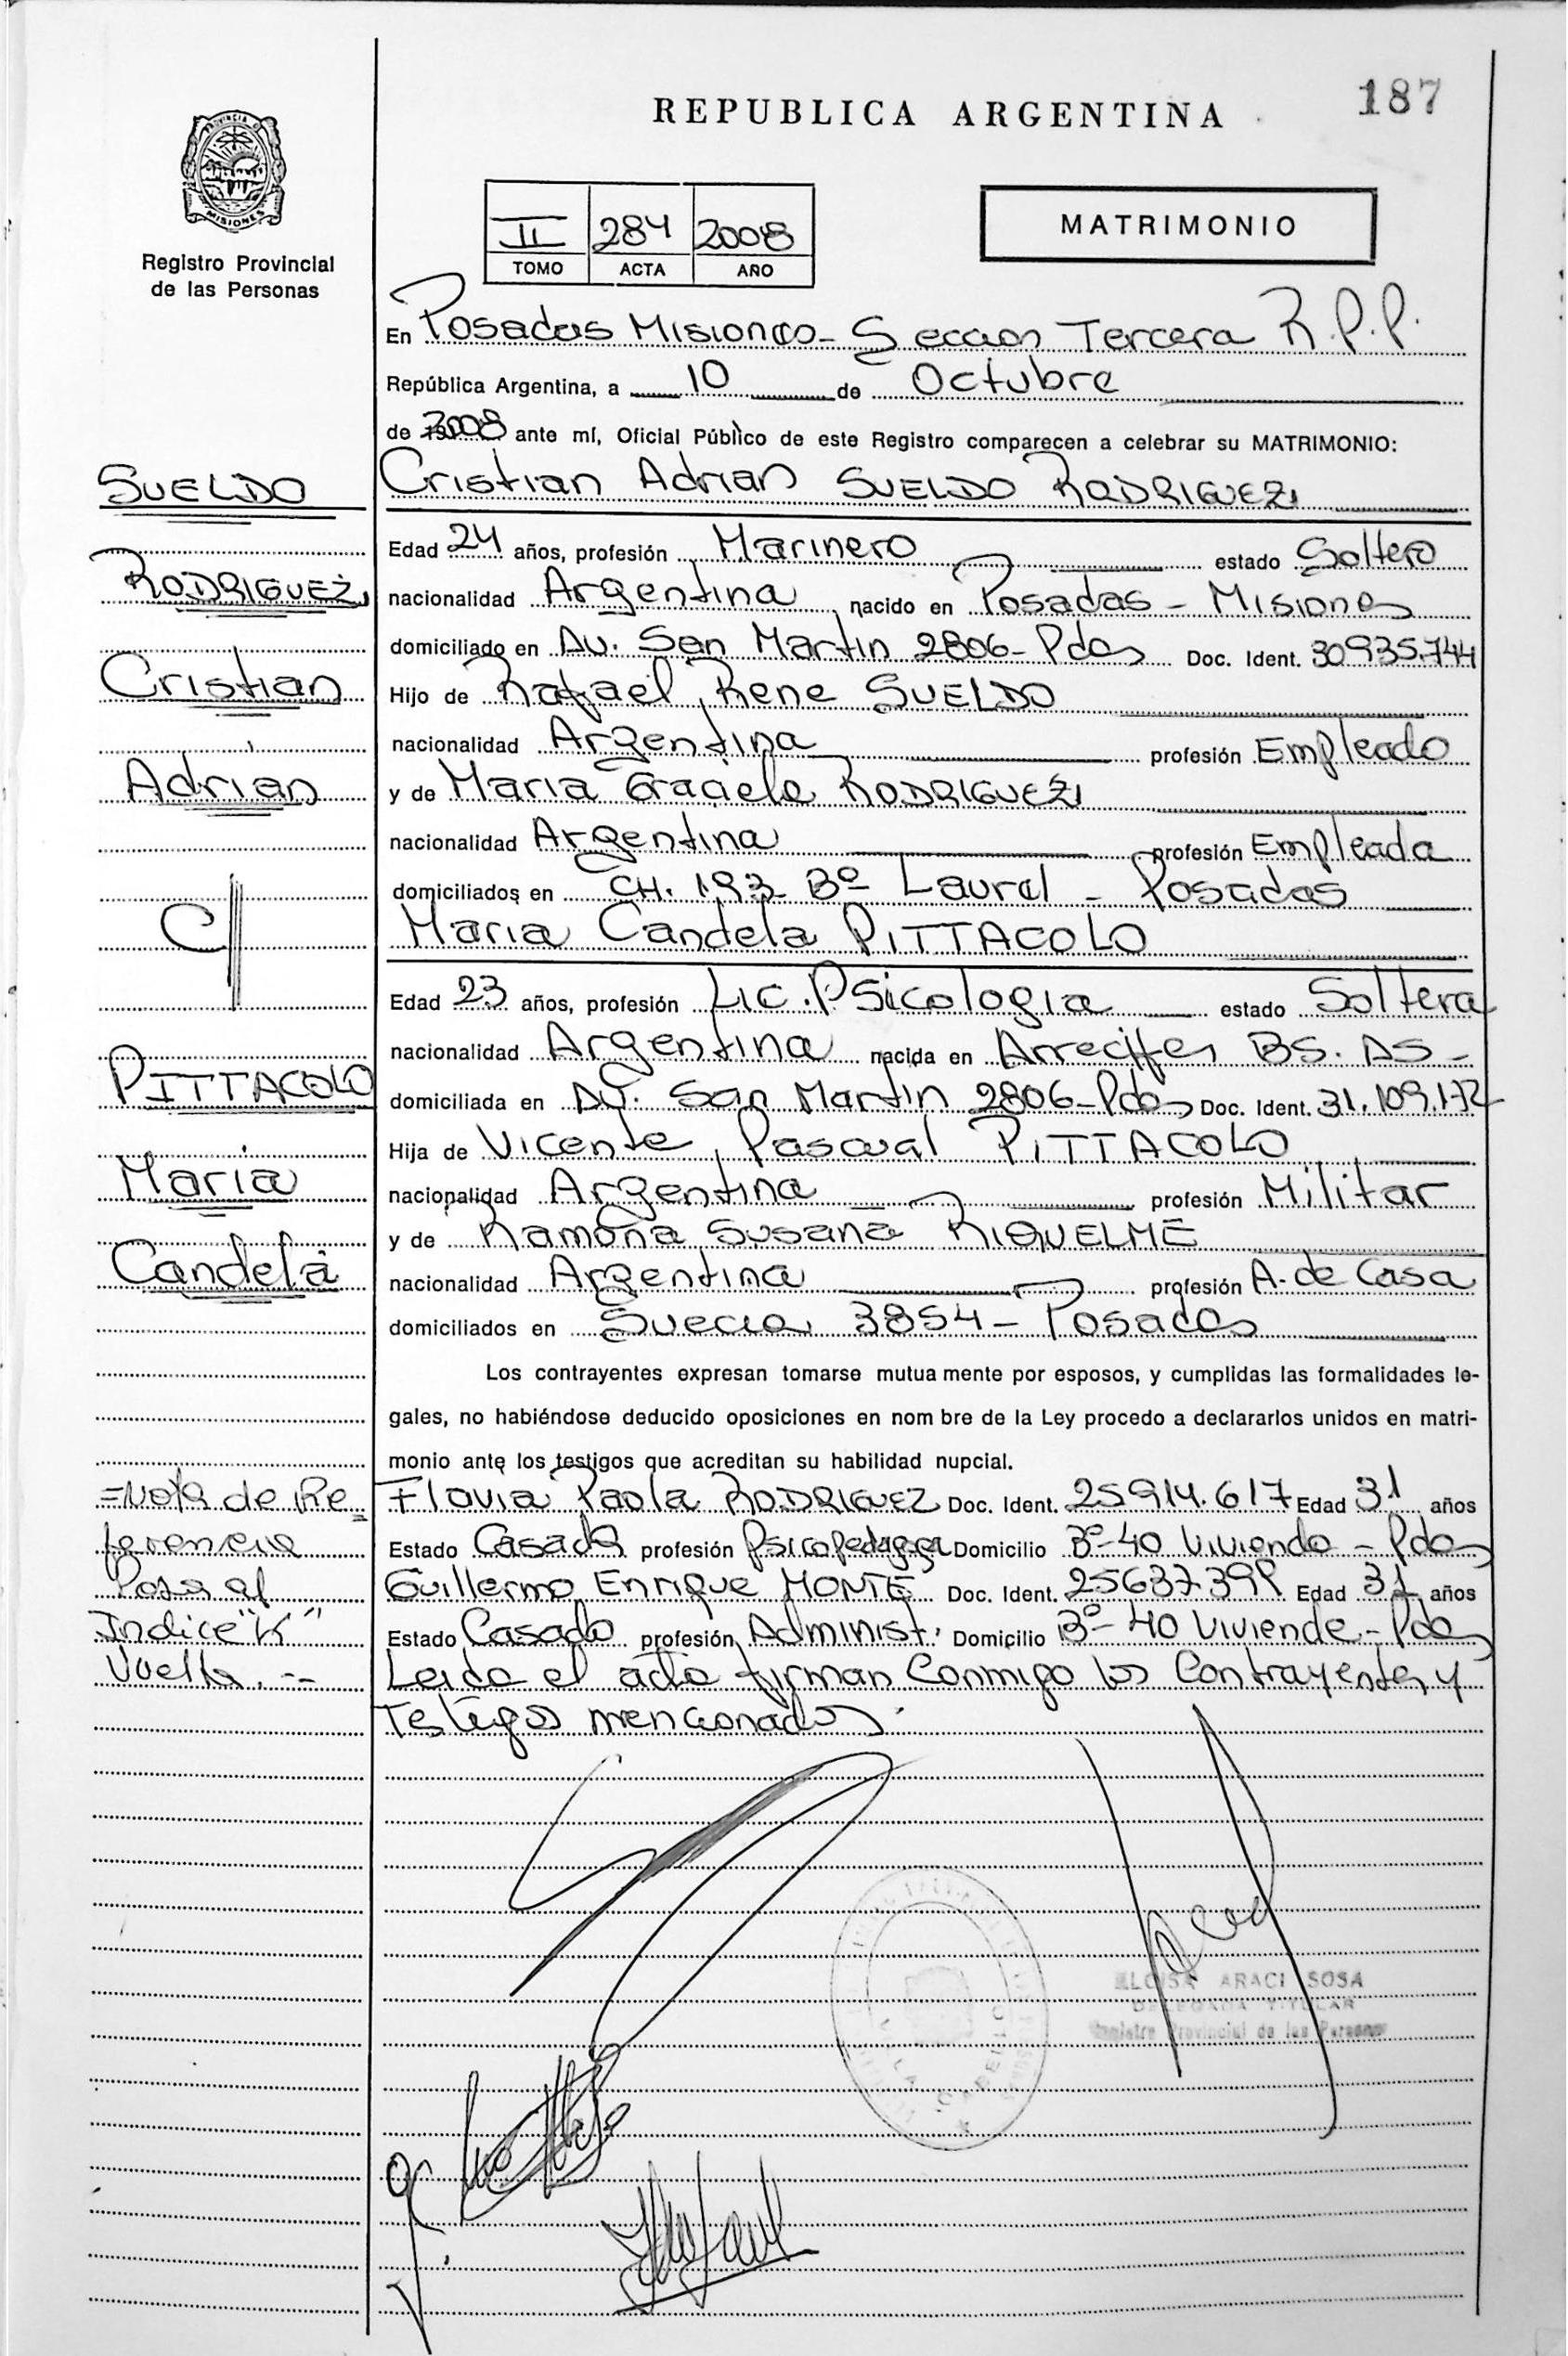 187
REPUBLICA ARGENTINA
PROVINCIA D MISIONES
Registro Provincial
de las Personas
II 284 2008
TOMO ACTA AÑO
MATRIMONIO
En Posadas Misiones - Seccion Tercera R.P.P.
República Argentina, a 10 de Octubre
de 2008 ante mí, Oficial Público de este Registro comparecen a celebrar su MATRIMONIO:
SUELDO
Cristian Adrian SUELDO RODRIGUEZ
Edad 24 años, profesión Marinero estado Soltero
RODRIGUEZ
nacionalidad Argentina nacido en Posadas - Misiones
domiciliado en Av. San Martin 2806 - Pdas Doc. Ident. 30935.744
Cristian
Hijo de Rafael Rene SUELDO
nacionalidad Argentina profesión Empleado
Adrian
y de Maria Graciela RODRIGUEZ
nacionalidad Argentina profesión Empleada
domiciliados en CH. 193 Bº Laurel - Posadas
C//
Maria Candela PITTACOLO
Edad 23 años, profesión Lic. Psicologia estado Soltera
nacionalidad Argentina nacida en Arrecifes BS. AS -
PITTACOLO
domiciliada en Av. San Martin 2806 - Pdas Doc. Ident. 31.109.172
Hija de Vicente Pascual PITTACOLO
Maria
nacionalidad Argentina profesión Militar
y de Ramona Susana RIQUELME
Candela
nacionalidad Argentina profesión A. de Casa
domiciliados en Suecia 3854 - Posadas
Los contrayentes expresan tomarse mutua mente por esposos, y cumplidas las formalidades le-
gales, no habiéndose deducido oposiciones en nom bre de la Ley procedo a declararlos unidos en matri-
monio ante los testigos que acreditan su habilidad nupcial.
=Nota de Re=
Flavia Paola RODRIGUEZ Doc. Ident. 25914.617 Edad 31 años
ferencia
Estado Casada profesión Psicopedagoga Domicilio Bº 40 Vivienda - Pdas
Pasa al
Guillermo Enrique MONTE Doc. Ident. Edad 31 años
Indice "K"
Estado Casado profesión Administ. Domicilio Bº 40 Viviende - Pdas
Vuelta. -
Leido el acta firman Conmigo los Contrayentes y
Testigos mencionados.
ELOISA ARACI SOSA
DELEGADA TITULAR
Registro Provincial de las Personas
VILLA CABELLO